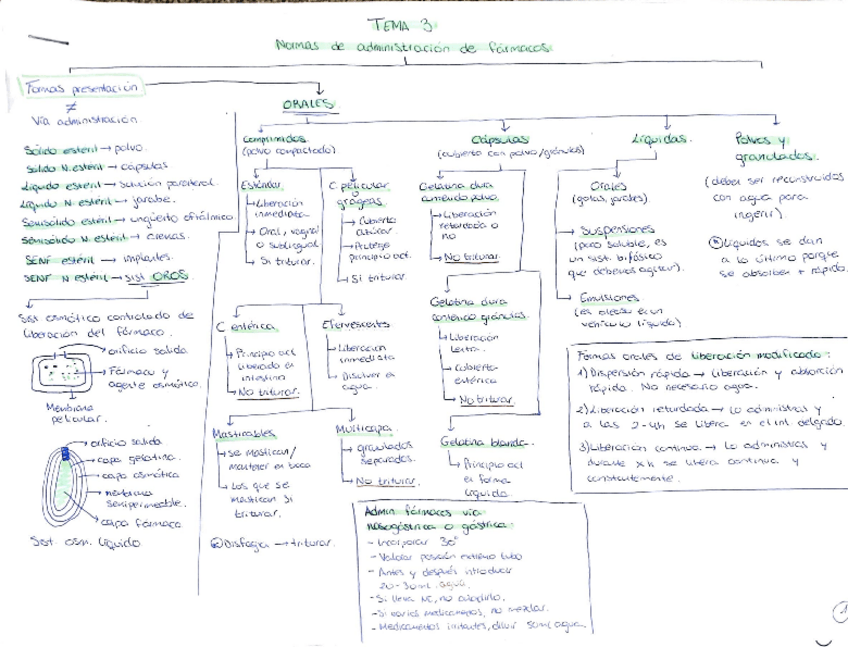 TEMA 3
Normas de administración de fármacos
Formas presentación
≠
Vía administración
Sólido estéril → polvo.
Sólido N. estéril → cápsulas
Líquido estéril → solución parenteral.
Líquido N. estéril → jarabe.
Semisólido estéril → ungüento oftálmico.
Semisólido N. estéril → cremas.
SENF estéril → implantes.
SENF N estéril → sist OROS
Sist osmótico controlado de
liberación del fármaco.
orificio salida
Fármaco y
agente osmótico.
Membrana
pelicular.
orificio salida
capa gelatina.
capa osmótica
membrana
semipermeable.
capa fármaco
Sist. osm. líquido.
ORALES
Comprimidos
(polvo compactado)
Estándar
Liberación
inmediata
Oral, vaginal
o sublingual
Si triturar.
C pelicular
grageas
Cubierta
azúcar.
Protege
principio act.
Si triturar
C entérica
Principio act
liberado en
intestino
No triturar.
Efervescentes
Liberación
inmediata
Disolver en
agua.
Masticables
Se mastican/
mantener en boca
Los que se
mastican Si
triturar.
Multicapa
granulados
separados.
No triturar.
Disfagia → triturar.
Cápsulas
(cubierta con polvo/gránulos)
Gelatina dura
contenido polvo.
Liberación
retardada o
no
No triturar.
Gelatina dura
contenido gránulos.
Liberación
lenta.
Cubierta
entérica
No triturar.
Gelatina blanda.
Principio act
en forma
líquida
Líquidas.
Orales
(gotas, jarabes)
Suspensiones
(poco soluble, es
un sist. bifásico
que debemos agitar).
Emulsiones
(es oleoso en un
vehículo líquido)
Polvos y
granulados.
(deben ser reconstruidos
con agua para
ingerir).
Líquidos se dan
a lo último porque
se absorben + rápido.
Formas orales de liberación modificada:
1) Dispersión rápida → liberación y absorción
rápida. No necesario agua.
2) Liberación retardada → lo administras y
a las 2-4h se libera en el int delgado.
3) Liberación continua. → Lo administras y
durante xh se libera continua y
constantemente.
Admin fármacos vía
nasogástrica o gástrica:
- Incorporar 30°
- Valorar posición extremo tubo
- Antes y después introducir
20-30ml agua.
- Si lleva NE, no añadirlo.
- Si varios medicamentos, no mezclar.
- Medicamentos irritantes, diluir 50ml agua.
1